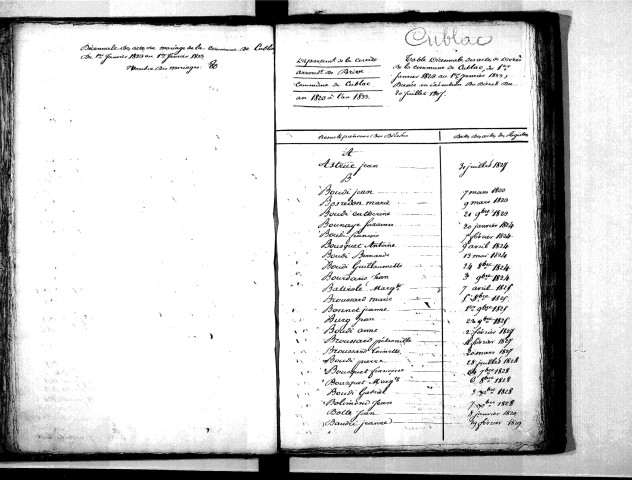 Décennale des actes de mariage de la commune de Cublac
du 1er janvier 1823 au 1er janvier 1833
Nombre des mariages. 80
Cublac
Département de la Corrèze
arrondt de Brive
Commune de Cublac
an 1823 à l'an 1833
Table Décennale des actes de Décès
de la commune de Cublac, du 1er
janvier 1823 au 1er janvier 1833,
Dressée en exécution du Décret du
20 juillet 1807.
Noms et prénoms des Décédés
Dates des actes des Registres
A
Astruc jean 30 juillet 1827
B
Boudi jean 7 mars 1823
Bosredon marie 9 mars 1823
Boudi catherine 21 9bre 1823
Bounaye suzanne 20 janvier 1824
Boudi françois 7 février 1824
Bousquet Antoine 9 avril 1824
Boudi Bernarde 13 mai 1824
Boudi Guillaumette 24 8bre 1824
Bourdaris jean 3 9bre 1824
Batissole Margte 7 avril 1825
Broussard marie 5 8bre 1825
Bounet jeanne 1er 9bre 1825
Burg jean 22 9bre 1825
Boudi anne 2 février 1827
Broussard pétronille 4 février 1827
Broussard Toinette 20 mars 1827
Boudi pierre 28 juillet 1828
Bousquet françoise 7bre 1828
Bousquet Margte 6 8bre 1828
Boudi Gabriel 3 xbre 1828
Bolimond jean 7 xbre 1828
Bolle jean 8 janvier 1829
Baudri jeanne 19 février 1829